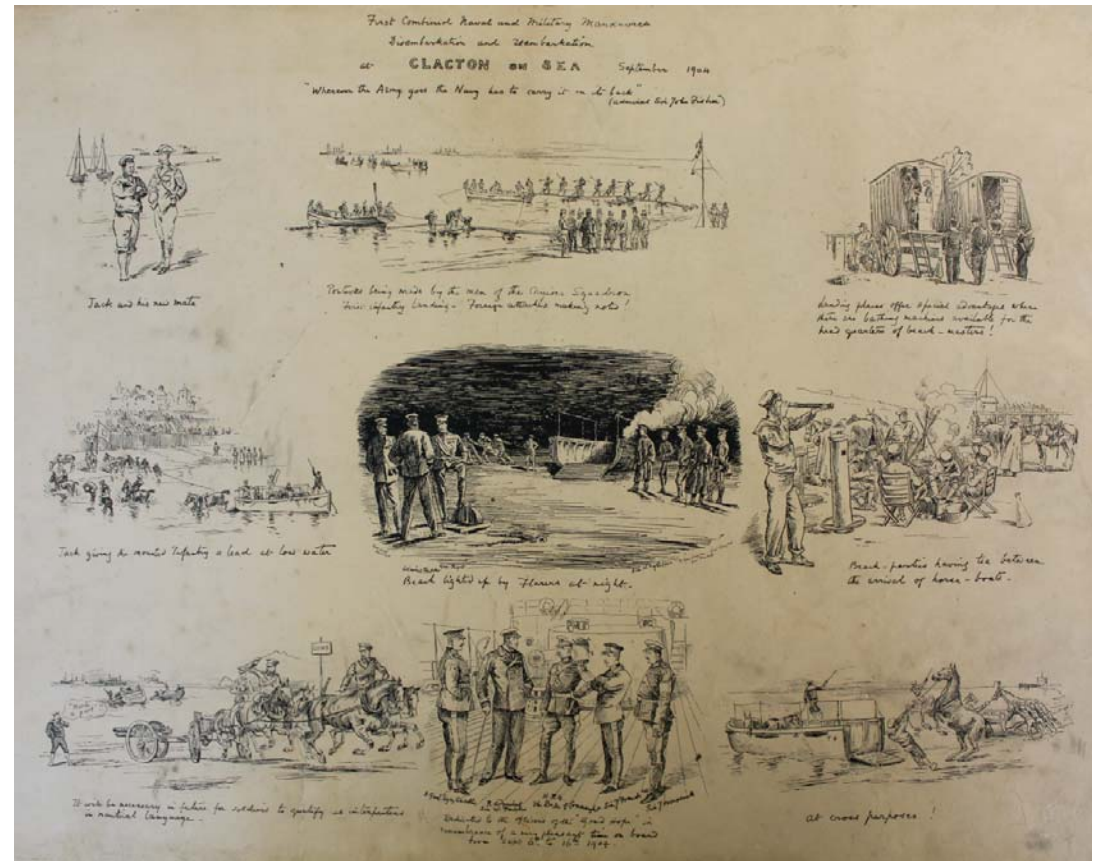 First Combined Naval and Military Manœuvres
Disembarkation and reembarkation
at CLACTON ON SEA September 1904
"Wherever the Army goes the Navy has to carry it on its back"
(Admiral Sir John Fisher)
Jack and his new mate
Pontoons being made by the men of the Cruiser Squadron
First infantry landing - Foreign attachés making notes!
Landing places offer special advantages when
there are bathing machines available for the
head quarters of beach-masters!
Jack giving the mounted Infantry a lead at low water
Beach lighted up by flares at night.
Beach-parties having tea between
the arrival of horse-boats.
It will be necessary in future for soldiers to qualify as interpreters
in nautical language.
H.R.H.
Dedicated to the officers of the "Good Hope" in
remembrance of a very pleasant time on board
from Sept 6th to 16th 1904.
at cross purposes!